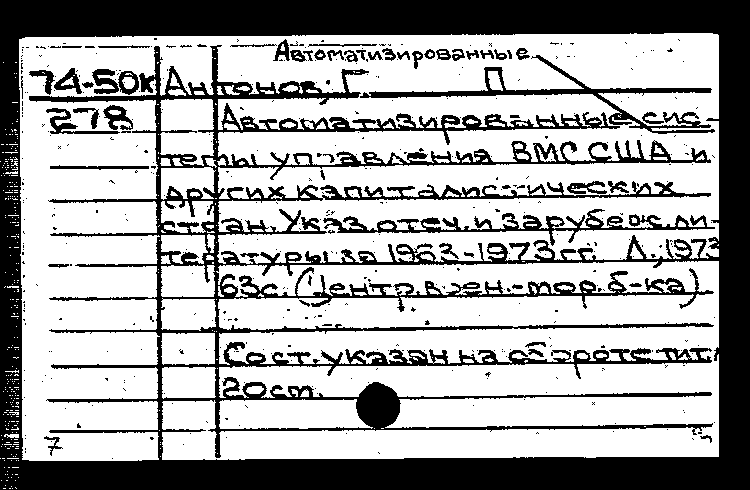 Автоматизированные
74-50к Антонов, Г П
278 Автоматизированные сис-
темы управления ВМС США и
других капиталистических
стран. Указ. отеч. и зарубеж. ли-
тературы за 1963-1973 гг. Л., 1973
63с. (Центр. воен.-мор. б-ка)
Сост. указан на обороте тит.
20см.
7